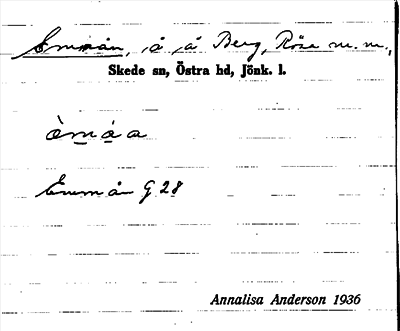 Emmån, å, å Berg, Rösa m.m.,
Skede sn, Östra hd, Jönk. l.
èmáa
Emmån G 28
Annalisa Anderson 1936